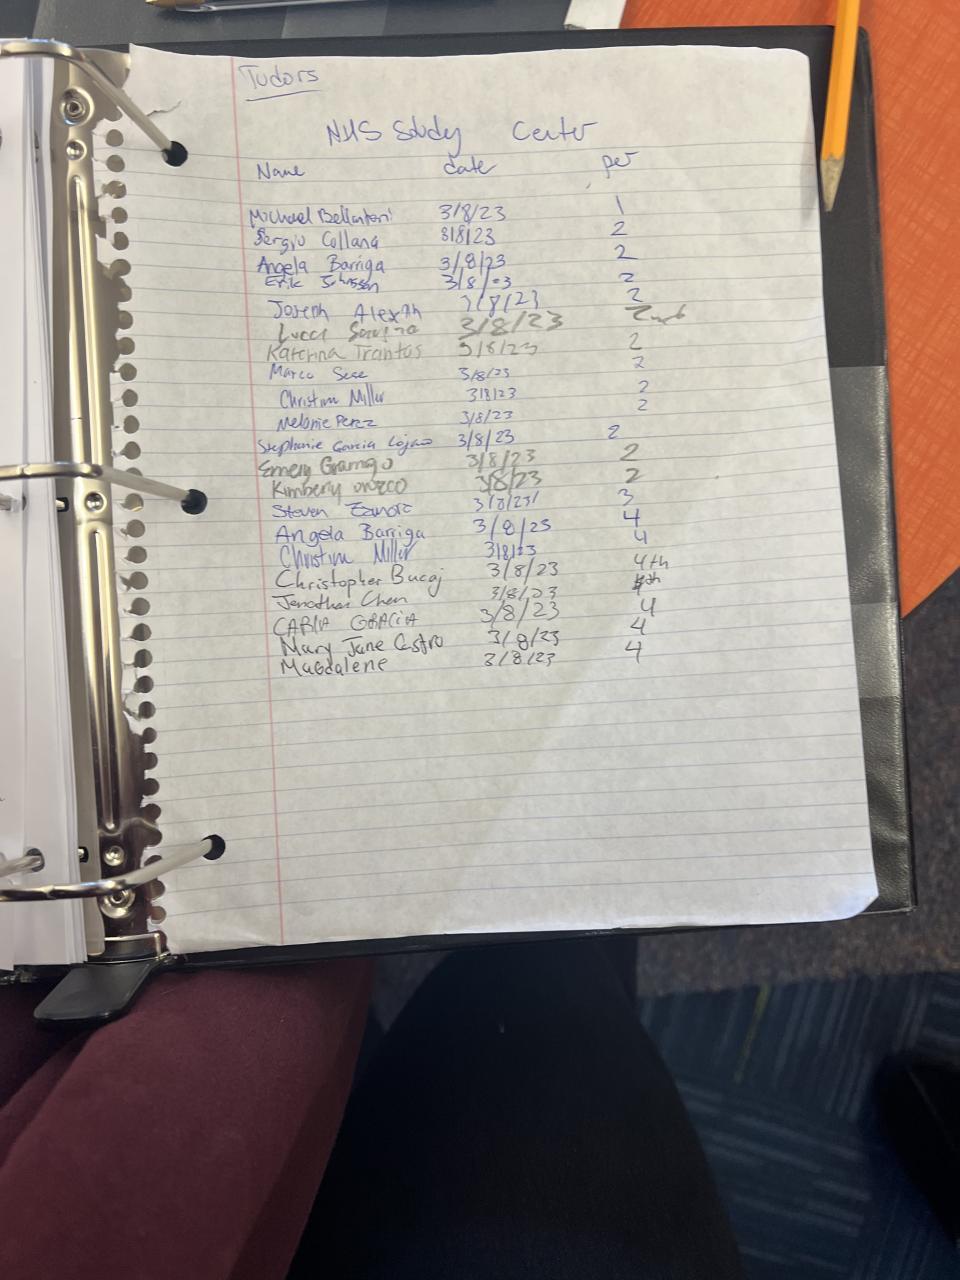 Tudors
NHS Study Center
Name date per
Michael Bellantoni 3/8/23 1
Sergio Collana 3/8/23 2
Angela Barriga 3/8/23 2
Erik 3/8/23 2
Joseph Alexah 3/8/23 2
Lucca 3/8/23 2nd
Katerina Trantas 3/8/23 2
Marco Sese 3/8/23 2
Christina Miller 3/8/23 2
Melanie Perez 3/8/23 2
Stephanie Garcia Lojano 3/8/23 2
Emery 3/8/23 2
Kimberly orozco 3/8/23 2
Steven 3/8/23 3
Angela Barriga 3/8/23 4
Christina Miller 3/8/23 4
Christopher Bucaj 3/8/23 4th
Jonathan Chen 3/8/23 4th
CARLA GRACIA 3/8/23 4
Mary Jane Castro 3/8/23 4
Magdalene 3/8/23 4